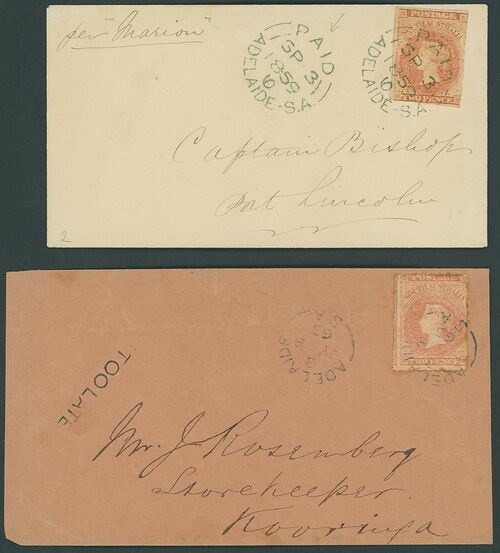 per "Marion"
PAID
SP 3
1859
6
ADELAIDE-S.A
POSTAGE
SOUTH AUSTRALIA
PAID
SP 3
1859
6
ADELAIDE-S.A
TWO PENCE
Captain Bishop
Port Lincoln
2
POSTAGE
SOUTH AUSTRALIA
TWO PENCE
ADELAIDE
TOO LATE
Mr. J Rosemberg
Storekeeper
Kooringa